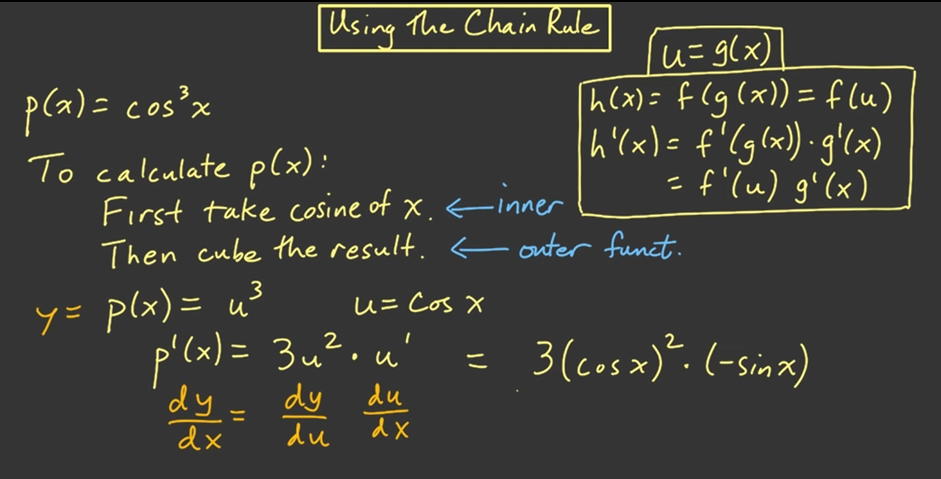 Using The Chain Rule
u = g(x)
h(x) = f(g(x)) = f(u)
h'(x) = f'(g(x)) · g'(x)
= f'(u) g'(x)
p(x) = cos³x
To calculate p(x):
First take cosine of x. ← inner
Then cube the result. ← outer funct.
y = p(x) = u³ u = cos x
p'(x) = 3u² · u' = 3(cos x)² · (-sin x)
dy/dx = dy/du du/dx